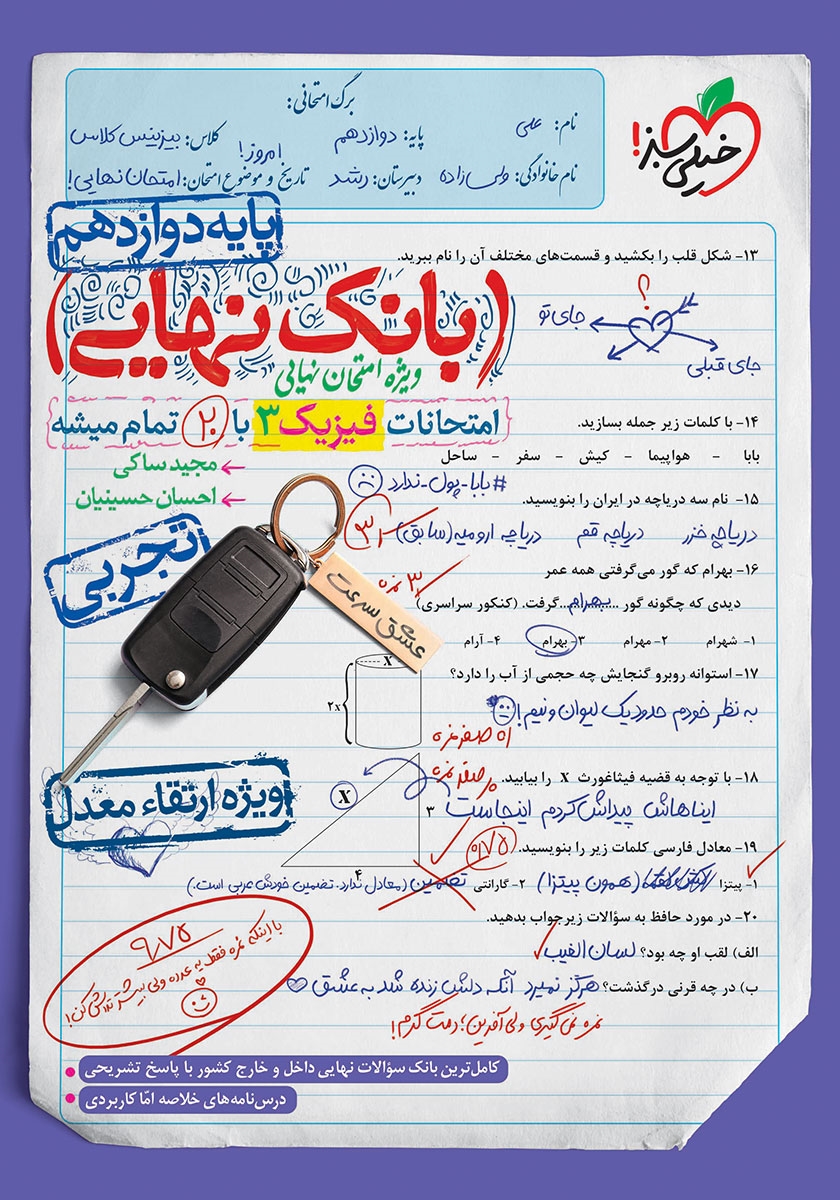 برگ امتحانی:
نام: علی
پایه: دوازدهم
کلاس: بیزینس کلاس
نام خانوادگی: ولی زاده
دبیرستان: رشد
تاریخ و موضوع امتحان: امروز! امتحان نهایی!
خیلی سبز!
پایه دوازدهم
(بانک نهایی)
ویژه امتحان نهایی
امتحانات فیزیک ۳ با ۲۰ تمام میشه
مجید ساکی
احسان حسینیان
تجربی
عشق سرعت
ویژه ارتقاء معدل
۱۳- شکل قلب را بکشید و قسمت‌های مختلف آن را نام ببرید.
؟
جای تو
جای قبلی
۱۴- با کلمات زیر جمله بسازید.
بابا - هواپیما - کیش - سفر - ساحل
#بابا_پول_ندارد
۱۵- نام سه دریاچه در ایران را بنویسید.
دریاچه خزر دریاچه قم دریاچه ارومیه (سابق)
۱۶- بهرام که گور می‌گرفتی همه عمر
۳ نمره
دیدی که چگونه گور ....بهرام.... گرفت. (کنکور سراسری)
۱- شهرام ۲- مهرام ۳- بهرام ۴- آرام
۱۷- استوانه روبرو گنجایش چه حجمی از آب را دارد؟
x
۲x
به نظر خودم حدود یک لیوان و نیم!
اه صفر نمره
۱۸- با توجه به قضیه فیثاغورث x را بیابید.
صفر نمره
ایناهاش پیداش کردم اینجاست
X
۳
۴
۱۹- معادل فارسی کلمات زیر را بنویسید.
۰/۷۵
۱- پیتزا (همون پیتزا) ۲- گارانتی تضمین (معادل ندارد. تضمین خودش عربی است.)
۲۰- در مورد حافظ به سؤالات زیر جواب بدهید.
الف) لقب او چه بود؟ لسان الغیب
ب) در چه قرنی درگذشت؟ هرگز نمیرد آنکه دلش زنده شد به عشق
نمره نمی‌گیری ولی آفرین؛ دمت گرم!
۹/۷۵
با اینکه نمره فقط یه عدده ولی بیشتر تلاش کن!
کامل‌ترین بانک سؤالات نهایی داخل و خارج کشور با پاسخ تشریحی
درس‌نامه‌های خلاصه امّا کاربردی